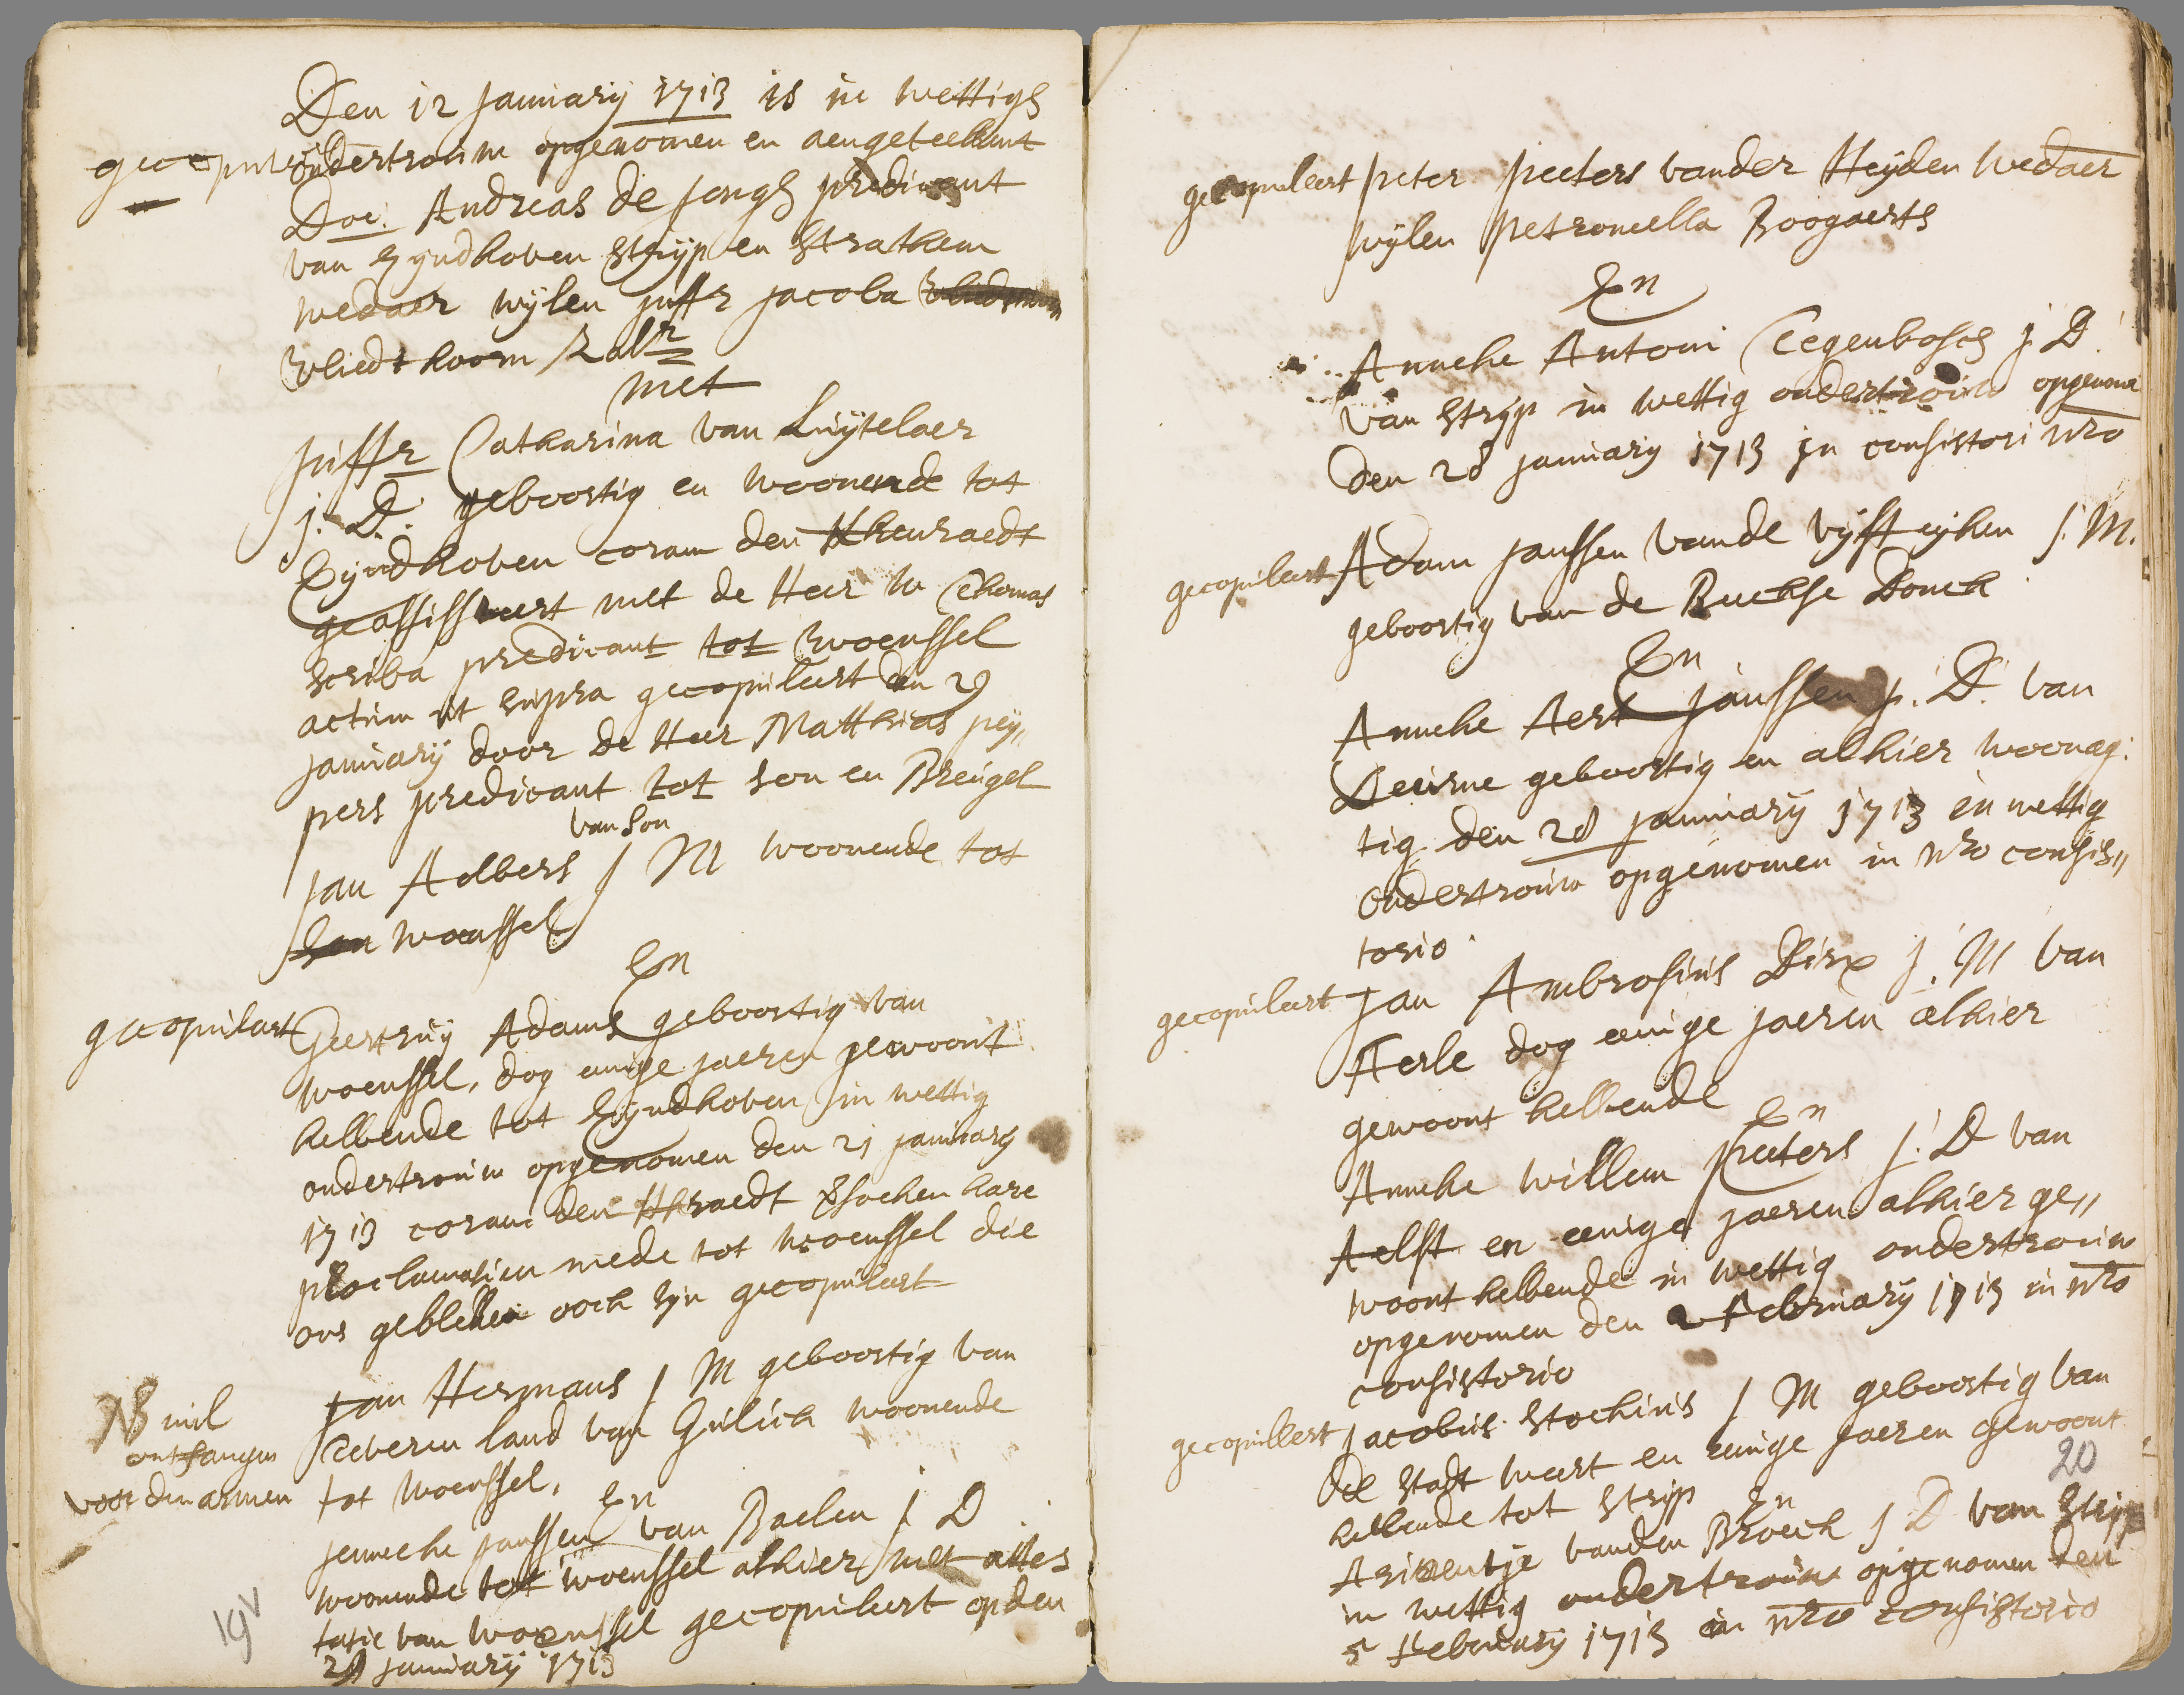 Den 12 January 1713 is in wettigh
gecopuleert
ondertrouw opgenomen en aengeteekent
Doe. Andreas de Jongh predicant
van Eyndhoven Strijp en Strathem
wedaer wijlen juffr Jacoba
Vliedthoorn Zalr
met
Juffr Catharina van Luijtelaer
j. D. geboortig en woonende tot
Eyndhoven coram den Kkenraedt
geassisteert met de Heer w Thomas
Scriba predicant tot Woenssel
actum ut supra gecopuleert den 29
january door de Heer Matthias pey„
pers predicant tot Son en Breugel
van Son
Jan Aelbers J M woonende tot
Son woenssel
En
gecopuleert Geertruy Adams geboortig van
Woenssel, dog eenige jaeren gewoont
hebbende tot Eyndhoven in wettig
ondertrouw opgenomen den 21 january
1713 coram den Kkraedt hare
proclamatien mede tot woenssel die
ons gebleken ooch zyn gecopuleert
NB nil
ontfangen
voor den armen
Jan Hermans J M geboortig van
Teveren land van Gulich woonende
tot Woenssel,
En
Jenneke Janssen van Baelen J D
woonende tot woenssel alhier met attes
tatie van Woenssel gecopuleert op den
29 january 1713
19v
gecopuleert Peter Peeters vander Heyden wedaer
wylen Petronella Boogaerts
En
Anneke Antoni Tegenbosch j. D.
van Stryp in wettig ondertrouw opgenom
den 28 january 1713 in consistori nro
gecopuleert Adam Janssen vande vyffteyken j. M.
geboortig van de Rucphse Donck
En
Anneke Aert Janssen j. D. van
Deurne geboortig en alhier woonag:
tig. den 28 january 1713 in wettig
ondertrouw opgenomen in nro consis„
torio.
gecopuleert Jan Ambrosius Dirx j. M van
Aerle dog eenige jaeren alhier
gewoont hebbende
En
Anneke Willem Peeters j. D van
Aelst en eenige jaeren alhier ge„
woont hebbende in wettig ondertrouw
opgenomen den 2 February 1713 in nro
consistorio
gecopulleert Jacobus Stockius J M geboortig van
de Stadt Weert en eenige jaeren gewoont
20
hebbende tot Stryp
En
vanden Broeck J. D van Stryp
in wettig ondertrouw opgenomen den
5 February 1713 in nro consistorio